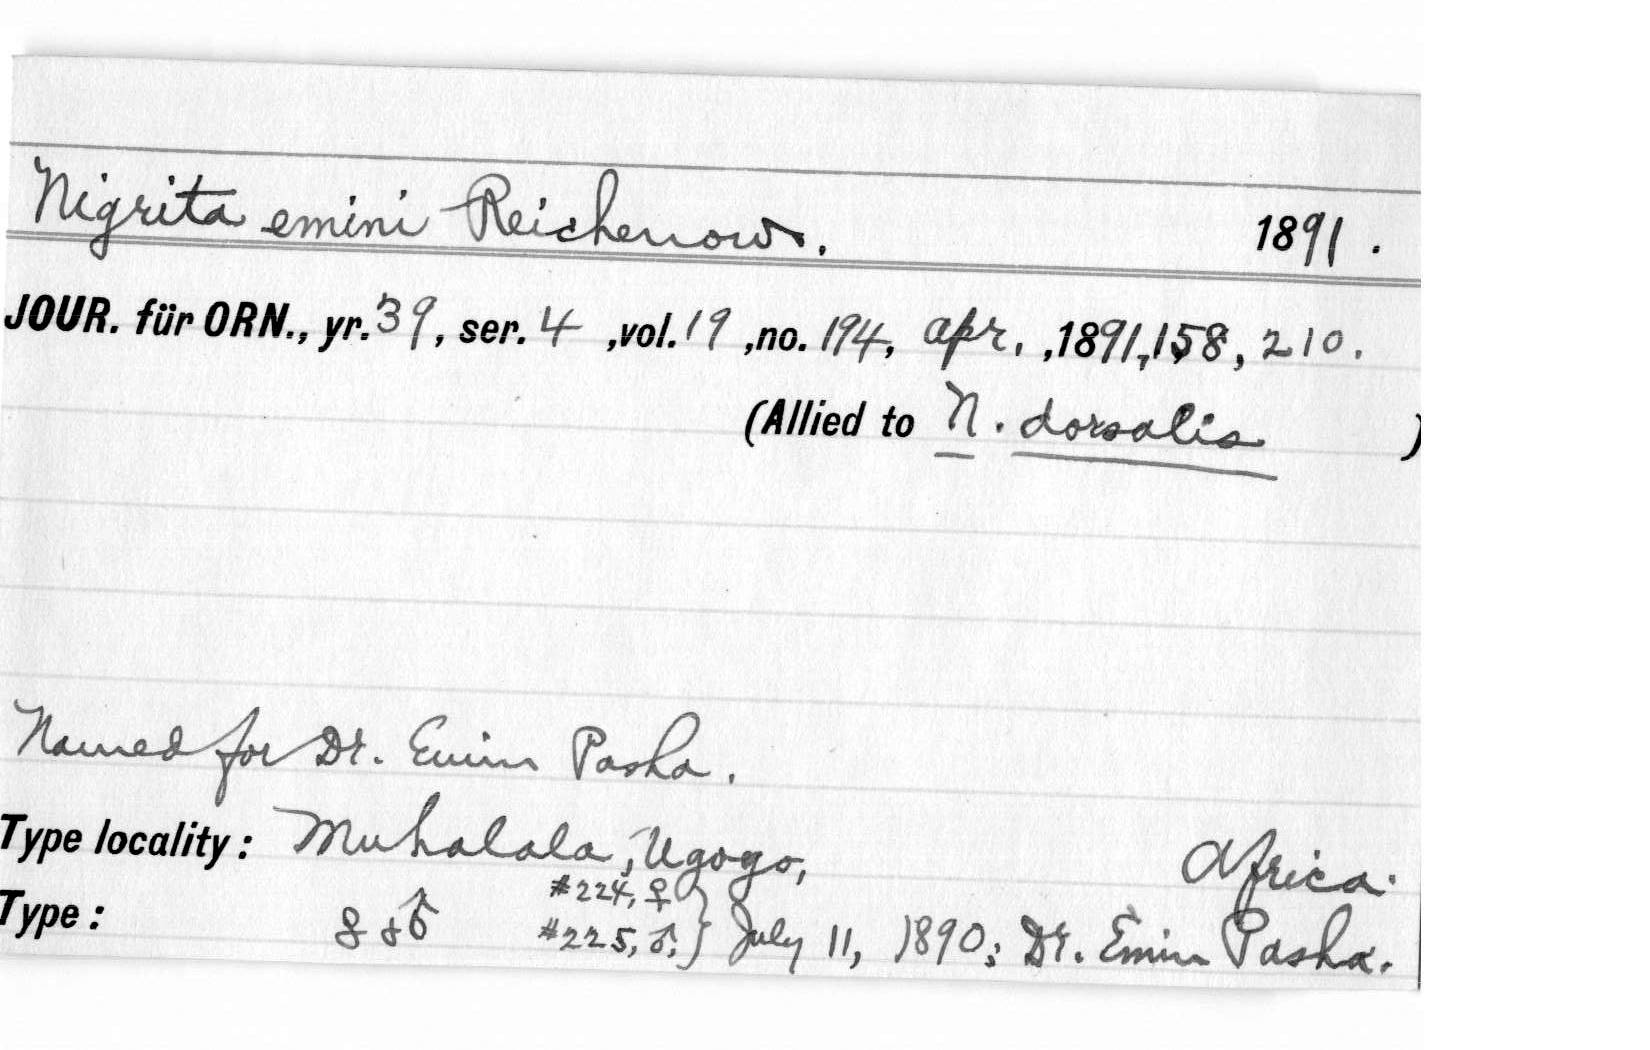 Nigrita emini Reichenow. 1891.
JOUR. für ORN., yr. 39, ser. 4, vol. 19, no. 194, Apr., 1891, 158, 210.
(Allied to N. dorsalis)
Named for Dr. Emin Pasha.
Type locality: Muhalala, Ugogo, Africa.
#224, ♀
Type: ♀ & ♂ #225, ♂; } July 11, 1890; Dr. Emin Pasha.